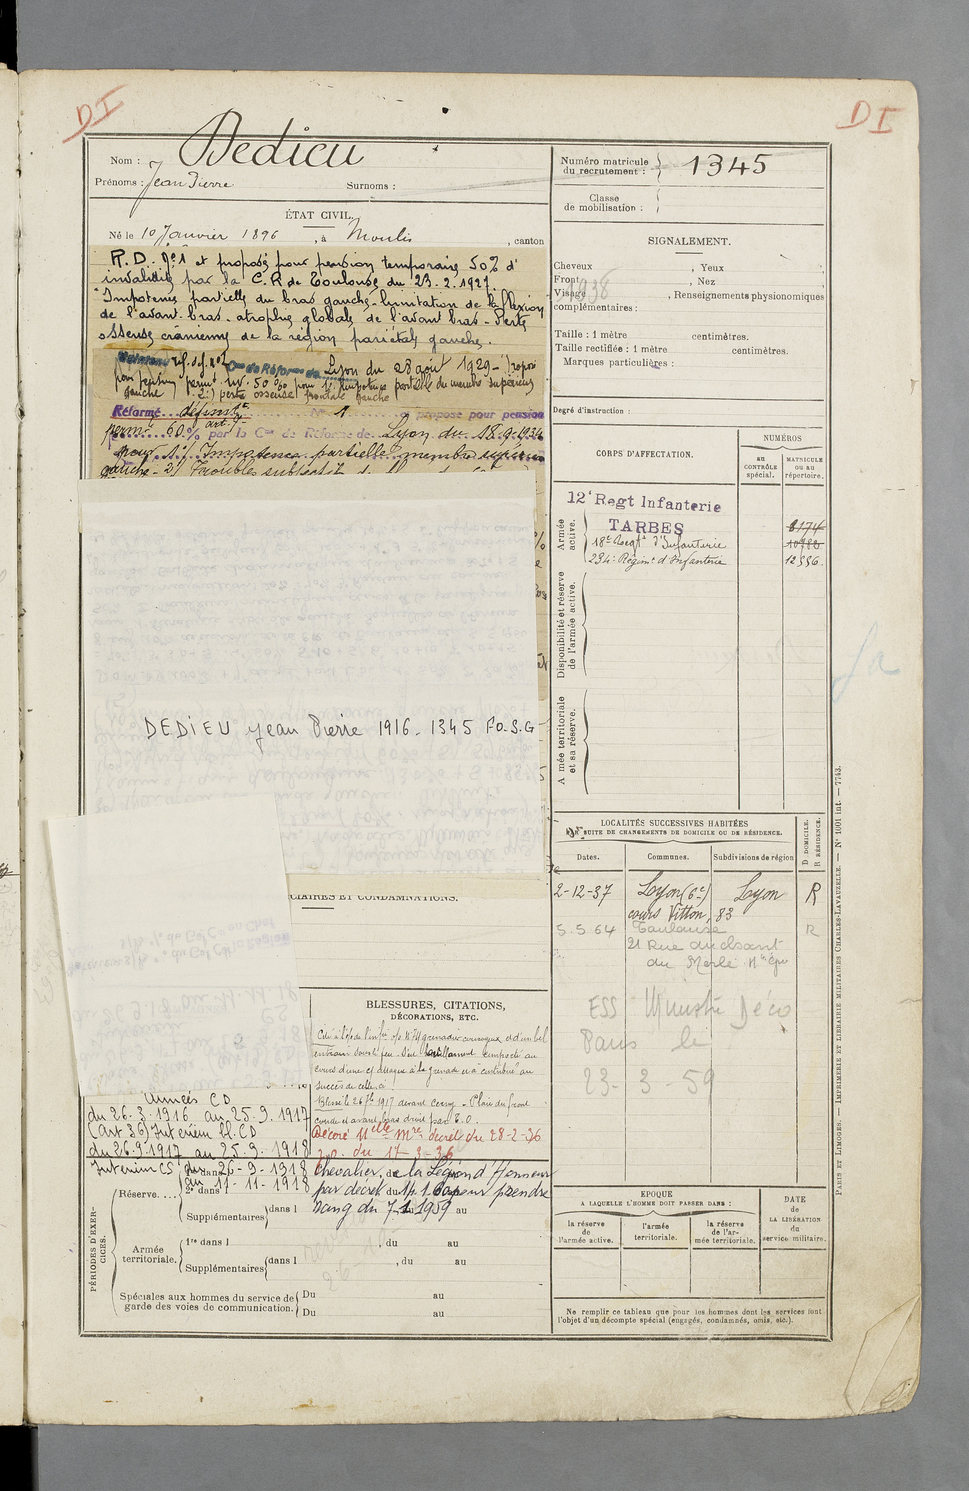 DI
DI
Nom : Dedieu
Prénoms : Jean Pierre Surnoms :
Numéro matricule du recrutement : 1345
Classe de mobilisation :
ÉTAT CIVIL.
Né le 10 Janvier 1896, à Moulis, canton
R.D. N°1 et proposé pour pension temporaire 50% d'
invalidité par la C.R de Toulouse du 23.2.1927.
Impotence partielle du bras gauche - limitation de la flexion
de l'avant-bras - atrophie globale de l'avant bras - Perte
osseuse crânienne de la région pariétale gauche.
Maintenu réf. déf. n°2 Con de Réforme de Lyon du 28 août 1929 - Proposé
pour pension permte inv. 50% pour 1° impotence partielle du membre supérieur
gauche 2°) perte osseuse frontale gauche
Réformé définitt N° 1 a proposé pour pension
permte 60% par la Con de Réforme de Lyon du 18.9.1934
pour 1°/ Impotence partielle membre supérieur
gauche - 2/ Troubles subjectifs
DEDIEU Jean Pierre 1916 - 1345 Fo.S.G
CIAIRES ET CONDAMNATIONS.
BLESSURES, CITATIONS,
DÉCORATIONS, ETC.
grenadier courageux et d'un bel
cours d'une attaque à la grenade et a contribué au
succès de celle-ci
Blessé le 26 1917 devant Cerny - Plaie du front
coude et avant bras droit par E.O.
Décoré Mlle Mre décret du 28-2-36
J.O. du 17-3-36
Chevalier de la Légion d'Honneur
par décret du pour prendre
rang du 7-1-1959
Années CD
du 26.3.1916 au 25.9.1917
(Art 36) Intérieur CD
du 26.9.1917 au 25.9.1918
Intérieur CS du 26-9-1918
au 11-11-1918
PÉRIODES D'EXERCICES.
Réserve.... 2e dans l
Supplémentaires dans l , du au
Armée territoriale. 1re dans l , du au
Supplémentaires dans l , du au
Spéciales aux hommes du service de garde des voies de communication. Du au
Du au
SIGNALEMENT.
Cheveux , Yeux
Front , Nez
Visage , Renseignements physionomiques
complémentaires :
1938
Taille : 1 mètre centimètres.
Taille rectifiée : 1 mètre centimètres.
Marques particulières :
Degré d'instruction :
CORPS D'AFFECTATION.
NUMÉROS
au CONTRÔLE spécial.
MATRICULE ou au répertoire.
Armée active.
12e Regt Infanterie
TARBES 8174
18e Regt d'Infanterie 10782
234e Régimt d'Infanterie 12556
Disponibilité et réserve de l'armée active.
Armée territoriale et sa réserve.
LOCALITÉS SUCCESSIVES HABITÉES
PAR SUITE DE CHANGEMENTS DE DOMICILE OU DE RÉSIDENCE.
Dates. Communes. Subdivisions de région.
D DOMICILE.
R RÉSIDENCE.
2-12-37 Lyon (6e) Lyon R
cours Vitton, 83
5.5.64 Toulouse R
21 Rue du chant
du Merle
ESS Ministre Déco
Paris le
23-3-59
EPOQUE
A LAQUELLE L'HOMME DOIT PASSER DANS :
la réserve de l'armée active.
l'armée territoriale.
la réserve de l'armée territoriale.
DATE de LA LIBÉRATION du service militaire.
Ne remplir ce tableau que pour les hommes dont les services font
l'objet d'un décompte spécial (engagés, condamnés, omis, etc.).
PARIS ET LIMOGES. — IMPRIMERIE ET LIBRAIRIE MILITAIRES CHARLES-LAVAUZELLE. — N° 1001 int. — 7743.